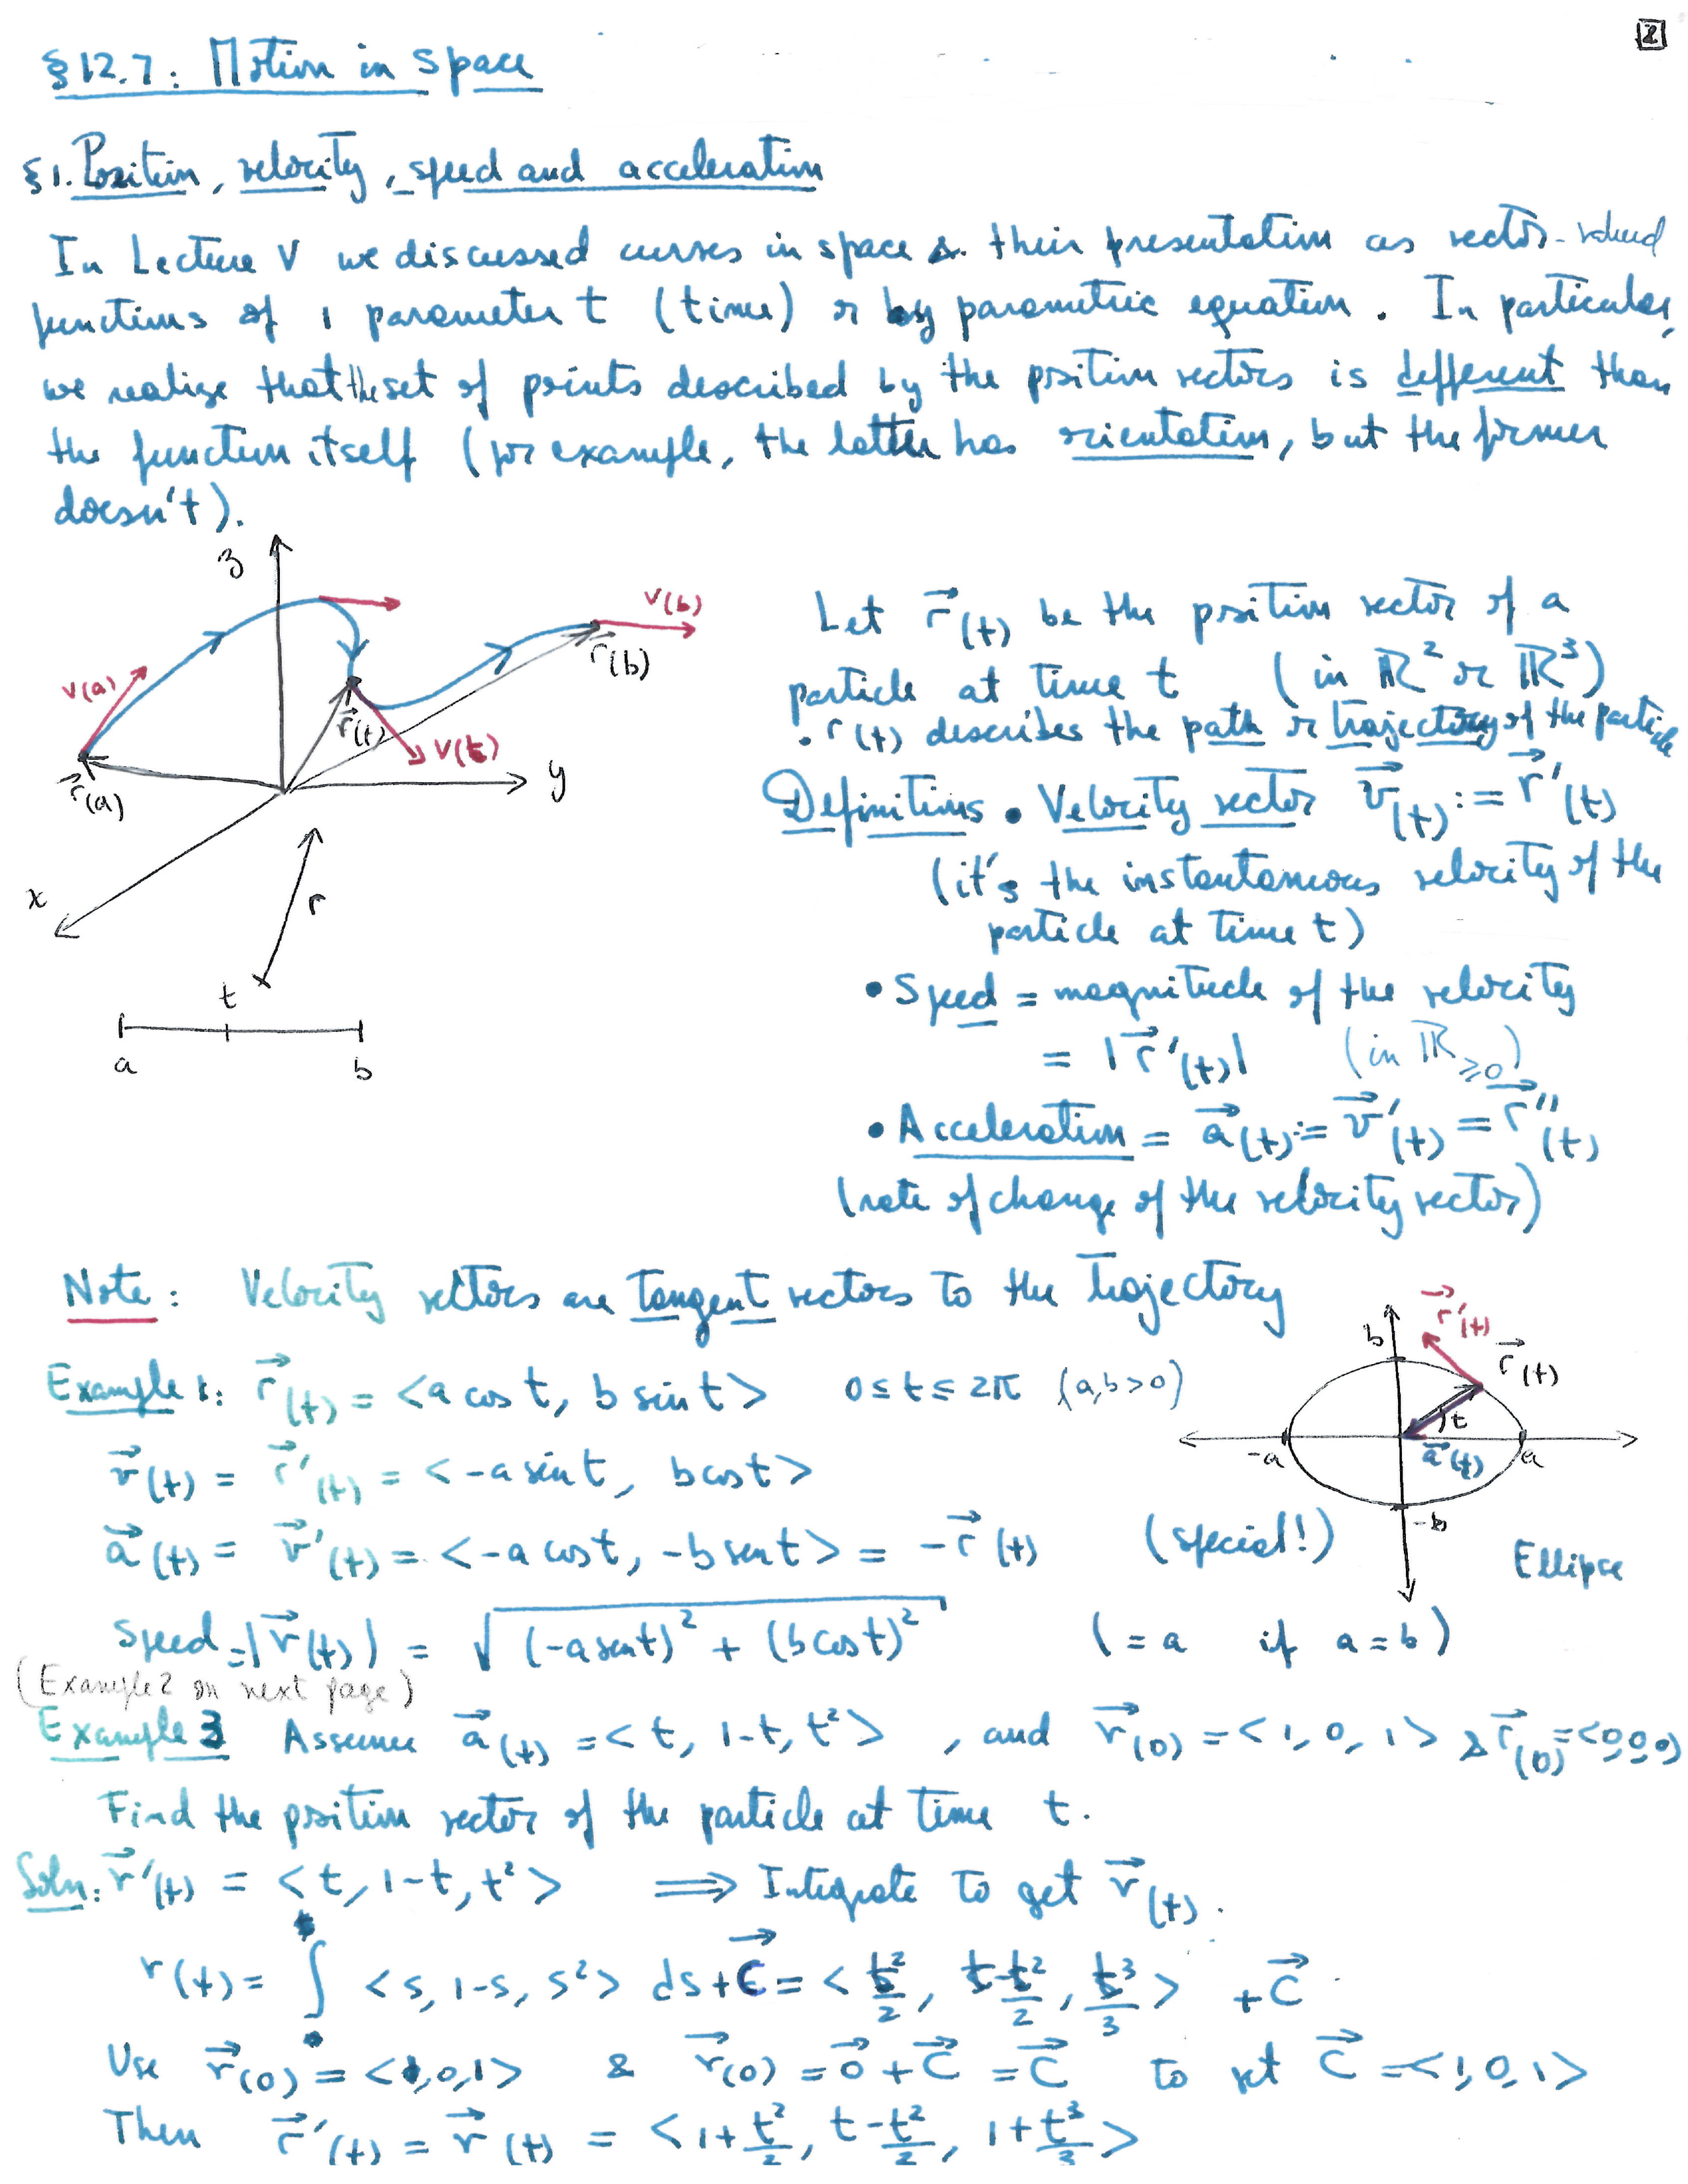 2
§12.7: Motion in space
§1. Position, velocity, speed and acceleration
In Lecture V we discussed curves in space & their presentation as vector-valued
functions of 1 parameter t (time) or by parametric equation. In particular,
we realize that the set of points described by the position vectors is different than
the function itself (for example, the latter has orientation, but the former
doesn't).
z
v(a)
v(b)
r⃗(b)
r⃗(t)
v(t)
r⃗(a)
y
x
r
t
a
b
Let r⃗(t) be the position vector of a
particle at time t (in ℝ² or ℝ³)
• r(t) describes the path or trajectory of the particle
Definitions • Velocity vector v⃗(t) := r⃗'(t)
(it's the instantaneous velocity of the
particle at time t)
• Speed = magnitude of the velocity
= |r⃗'(t)| (in ℝ≥0)
• Acceleration = a⃗(t) := v⃗'(t) = r⃗''(t)
(rate of change of the velocity vector)
Note: Velocity vectors are tangent vectors to the trajectory
Example 1: r⃗(t) = <a cos t, b sin t> 0 ≤ t ≤ 2π (a,b>0)
v⃗(t) = r⃗'(t) = <-a sin t, b cos t>
a⃗(t) = v⃗'(t) = <-a cos t, -b sent> = -r⃗(t) (special!)
b
r⃗'(t)
r⃗(t)
t
-a
a⃗(t)
a
-b
Ellipse
Speed = |v⃗(t)| = √((-a sent)² + (b cos t)²) (= a if a = b)
(Example 2 on next page)
Example 3 Assume a⃗(t) = <t, 1-t, t²>, and v⃗(0) = <1, 0, 1> & r⃗(0) = <0,0,0>
Find the position vector of the particle at time t.
Soln: v⃗'(t) = <t, 1-t, t²> ⟹ Integrate to get v⃗(t).
v(t) = ∫ <s, 1-s, s²> ds + C⃗ = <t²/2, t-t²/2, t³/3> + C⃗
Use v⃗(0) = <1,0,1> & v⃗(0) = 0⃗ + C⃗ = C⃗ to set C⃗ = <1,0,1>
Then r⃗'(t) = v⃗(t) = <1+t²/2, t-t²/2, 1+t³/3>